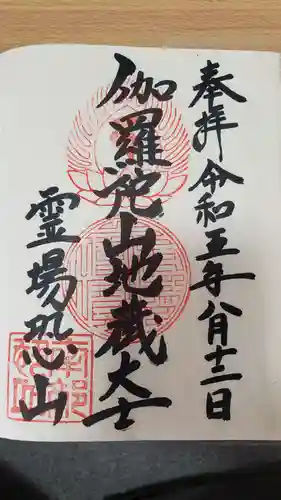 奉拝 令和五年八月十三日
伽羅陀山地蔵大士
霊場恐山